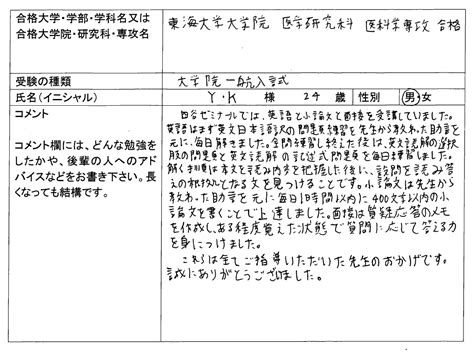 合格大学・学部・学科名又は
合格大学院・研究科・専攻名
東海大学大学院 医学研究科 医科学専攻 合格
受験の種類
大学院一般入試
氏名(イニシャル)
Y・K 様 24歳 性別 男・女
コメント
コメント欄には、どんな勉強を
したかや、後輩の人へのアド
バイスなどをお書き下さい。長
くなっても結構です。
四谷ゼミナールでは、英語と小論文と面接を受講していました。
英語はまず英文日本語訳の問題を練習を先生から教わった助言を
元に、毎日解きました。全問練習し終えた後は、英文読解の選択
肢の問題と英文読解の記述式問題を毎日練習しました。
解く手順は本文を読み内容を把握した後に、設問を読み答
えの根拠となる文を見つけることです。小論文は先生から
教わった助言を元に毎日1時間以内に400文字以内の小
論文を書くことで上達しました。面接は質疑応答のメモ
を作成しある程度覚えた状態で質問に応じて答える力
を身につけました。
これらは全てご指導いただいた先生のおかげです。
誠にありがとうございました。